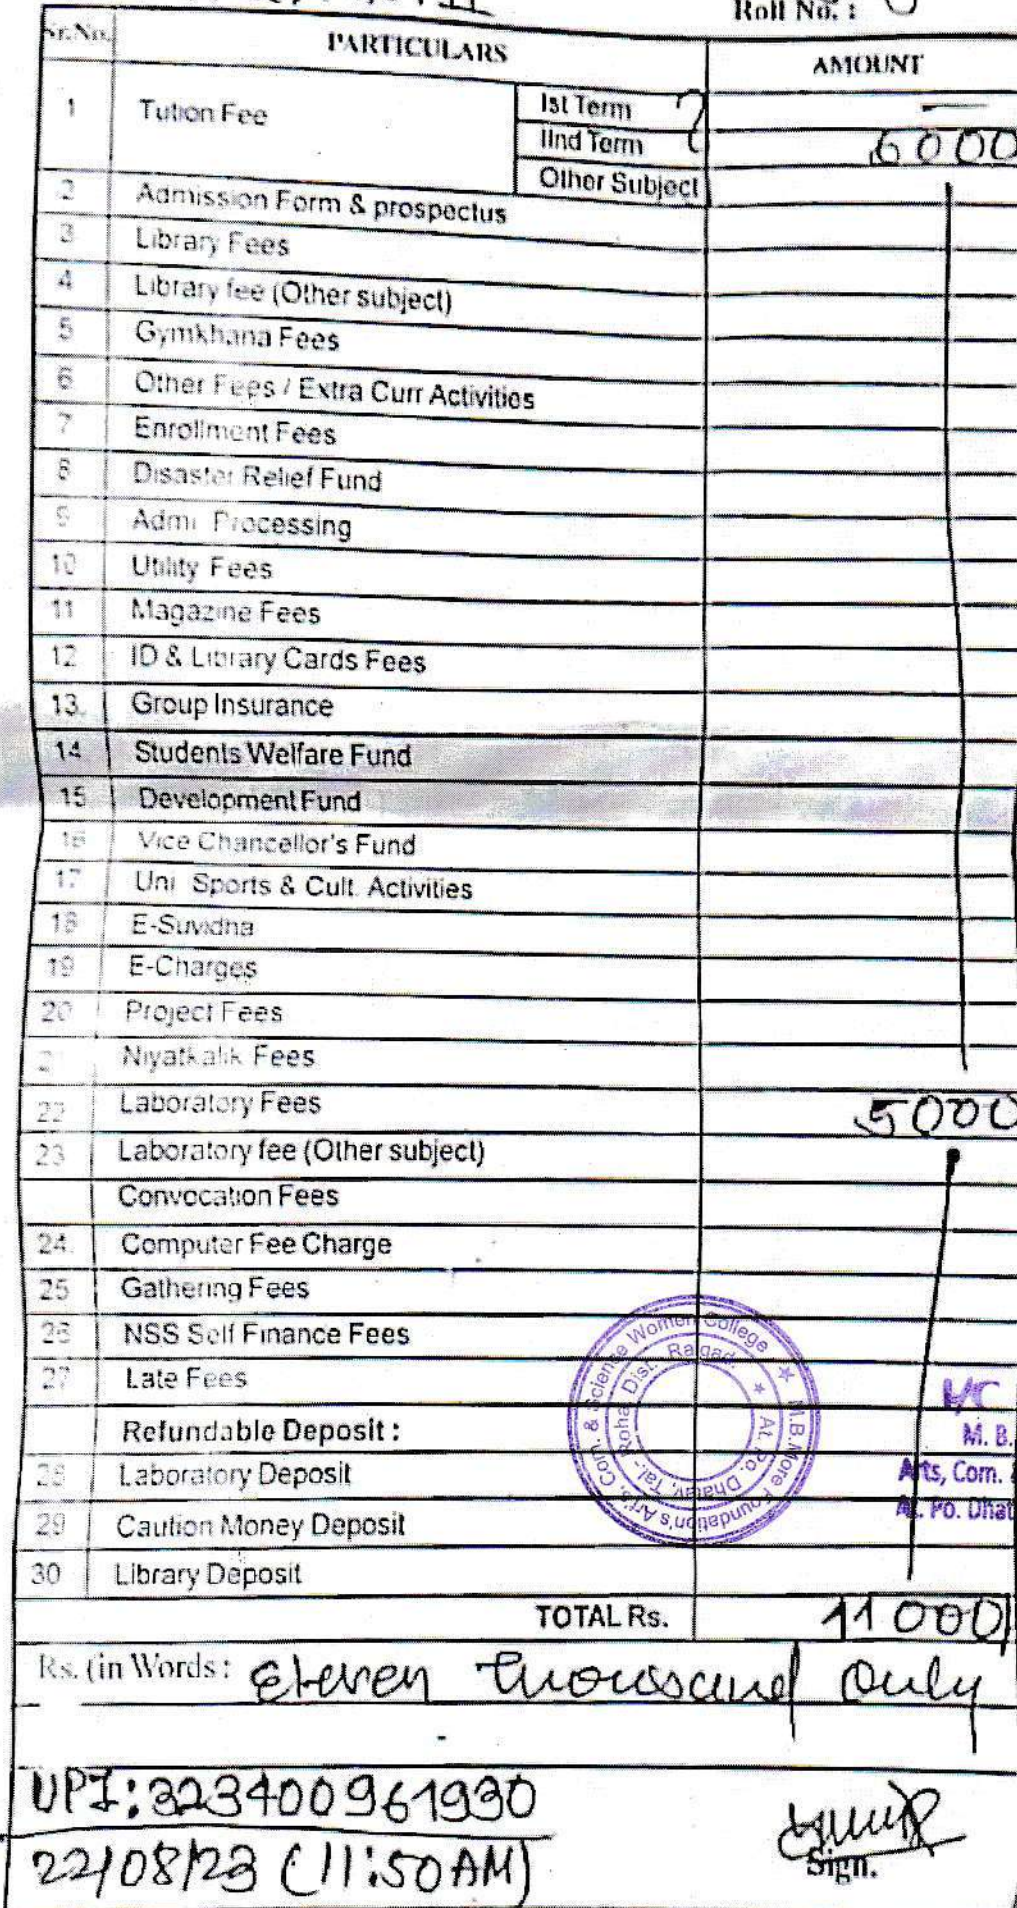 Roll No. :
Sr.No. PARTICULARS AMOUNT
1 Tution Fee Ist Term —
IInd Term 6000
Other Subject
2 Admission Form & prospectus
3 Library Fees
4 Library fee (Other subject)
5 Gymkhana Fees
6 Other Fees / Extra Curr Activities
7 Enrollment Fees
8 Disaster Relief Fund
9 Admi Processing
10 Utility Fees
11 Magazine Fees
12 ID & Library Cards Fees
13. Group Insurance
14 Students Welfare Fund
15 Development Fund
16 Vice Chancellor's Fund
17 Uni Sports & Cult. Activities
18 E-Suvidha
19 E-Charges
20 Project Fees
21 Niyatkalik Fees
22 Laboratory Fees 5000
23 Laboratory fee (Other subject)
Convocation Fees
24. Computer Fee Charge
25 Gathering Fees
26 NSS Self Finance Fees
27 Late Fees
Refundable Deposit :
28 Laboratory Deposit
29 Caution Money Deposit
30 Library Deposit
M.B.More Foundation's Arts, Com. & Science Women College
At. Po. Dhatav, Tal.- Roha Dist. Raigad.
I/C
M. B.
Arts, Com. &
At. Po. Dhat
TOTAL Rs. 11000
Rs. (in Words : Eleven thousand Only
UPI: 323400961930
22/08/23 (11:50 AM)
Sign.